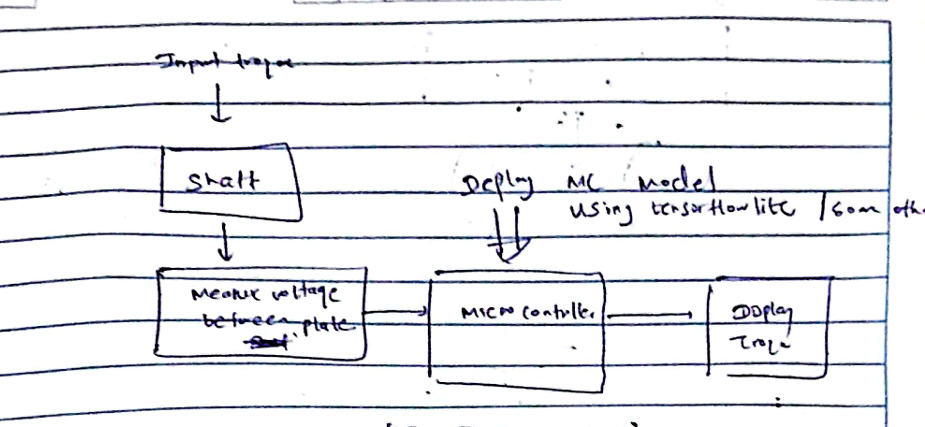 Input troque
Shaft
Deploy ML Model
using tensorflow lite / som oth
Measure voltage
between plate
Microcontroller
Display
Troque